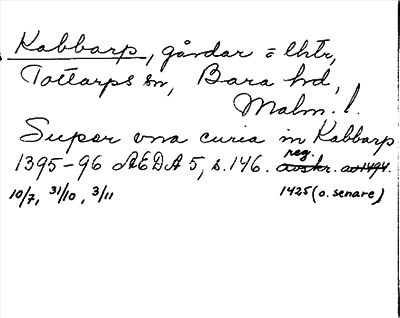 Kabbarp, gårdar = lhtr,
Tottarps sn, Bara hd,
Malm. l.
Super una curia in Kabbarp
1395-96 AEDA 5, s. 146. reg. avskr. av 1494.
10/7, 31/10, 3/11 1425 (o. senare)